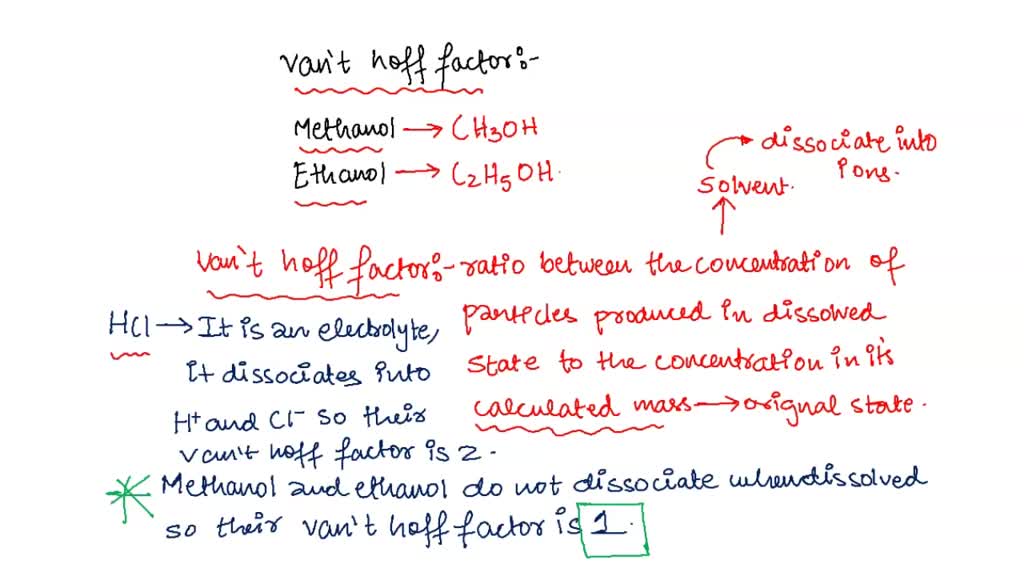 Van't hoff factor:-
Methanol → CH3OH
Ethanol → C2H5OH.
dissociate into
ions.
solvent.
Van't hoff factor:- ratio between the concentration of
particles produced in dissolved
state to the concentration in it's
calculated mass → orignal state.
HCl → It is an electrolyte,
it dissociates into
H+ and Cl- so their
van't hoff factor is 2.
Methanol and ethanol do not dissociate when dissolved
so their van't hoff factor is 1.